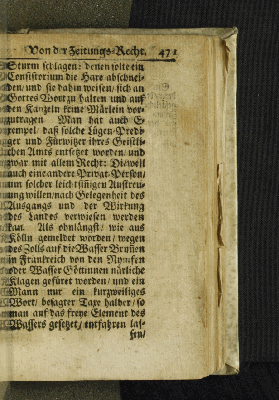 Von der Zeitungs-Recht. 471
Sturm schlagen: denen solte ein
Consistorium die Hare abschnei-
den/ und sie dahin weisen/ sich an
Gottes Wort zu halten und auf
den Kanzeln keine Märlein vor-
zutragen. Man hat auch E-
xempel/ daß solche Lügen-Predi-
ger und Fürwitzer ihres Geistli-
chen Amts entsetzet worden/ und
zwar mit allem Recht: Dieweil
auch eine andere Privat-Person/
um solcher leichtsinigen Ausstreu-
ung willen/ nach Gelegenheit des
Ausgangs und der Wirkung
des Landes verwiesen werden
kan. Als ohnlängst/ wie aus
Kölln gemeldet worden/ wegen
des Zolls auf die Wasser Brunnen
in Frankreich von den Nymfen
oder Wasser Göttinnen närliche
Klagen gefüret worden/ und ein
Mann nur ein kurzweiliges
Wort/ besagter Taxe halber/ so
man auf das freye Element des
Wassers gesetzet/ entfahren las-
sen/